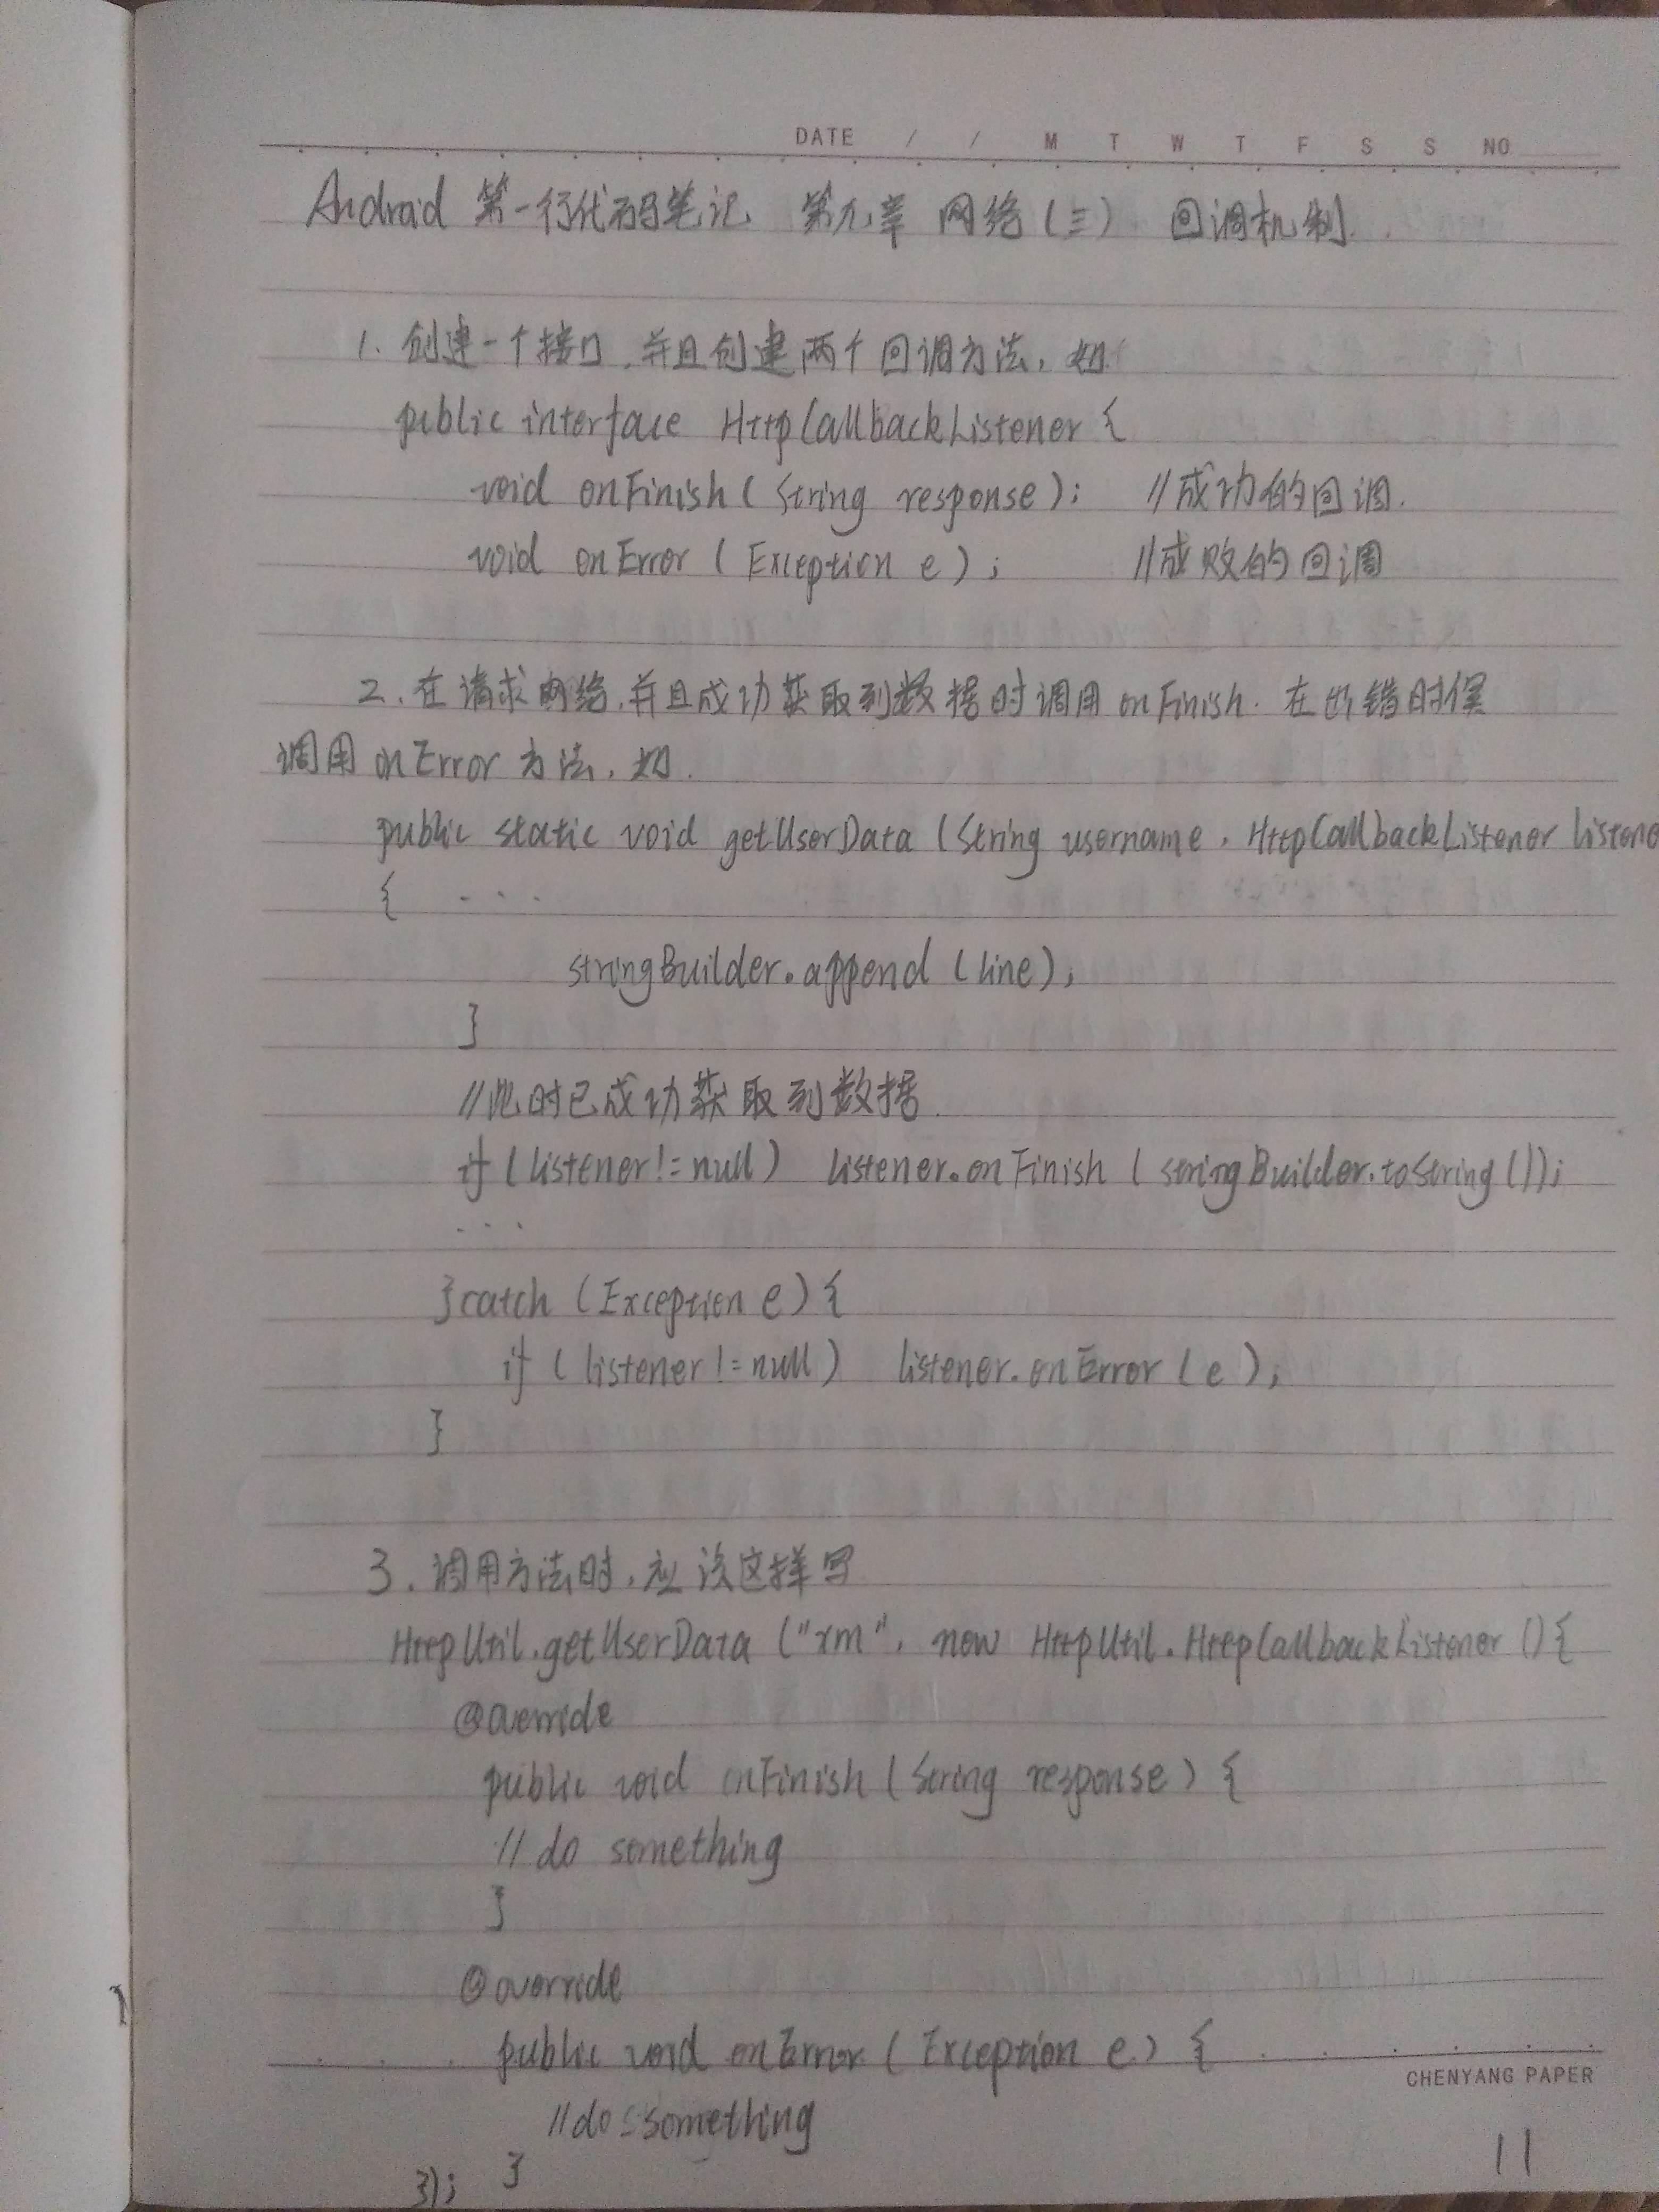 DATE / / M T W T F S S NO
Android 第一行代码笔记 第九章 网络(三) 回调机制.
1. 创建一个接口,并且创建两个回调方法,如.
public interface HttpCallbackListener {
void onFinish ( String response ); //成功的回调.
void onError ( Exception e ); //成败的回调
2. 在请求网络,并且成功获取到数据时调用 onFinish. 在出错时候
调用 onError 方法,如.
public static void getUserData (String username, HttpCallbackListener listene
{ ...
stringBuilder.append (line);
}
//此时已成功获取到数据.
if (listener!=null) listener.onFinish ( stringBuilder.toString());
...
}catch (Exception e) {
if ( listener!=null) listener.onError (e);
}
3. 调用方法时,应该这样写
HttpUtil.getUserData ("xm", new HttpUtil.HttpCallbackListener () {
@override
public void onFinish (String response) {
// do something
}
@override
public void onError ( Exception e) {
CHENYANG PAPER
//do something
}
});
11